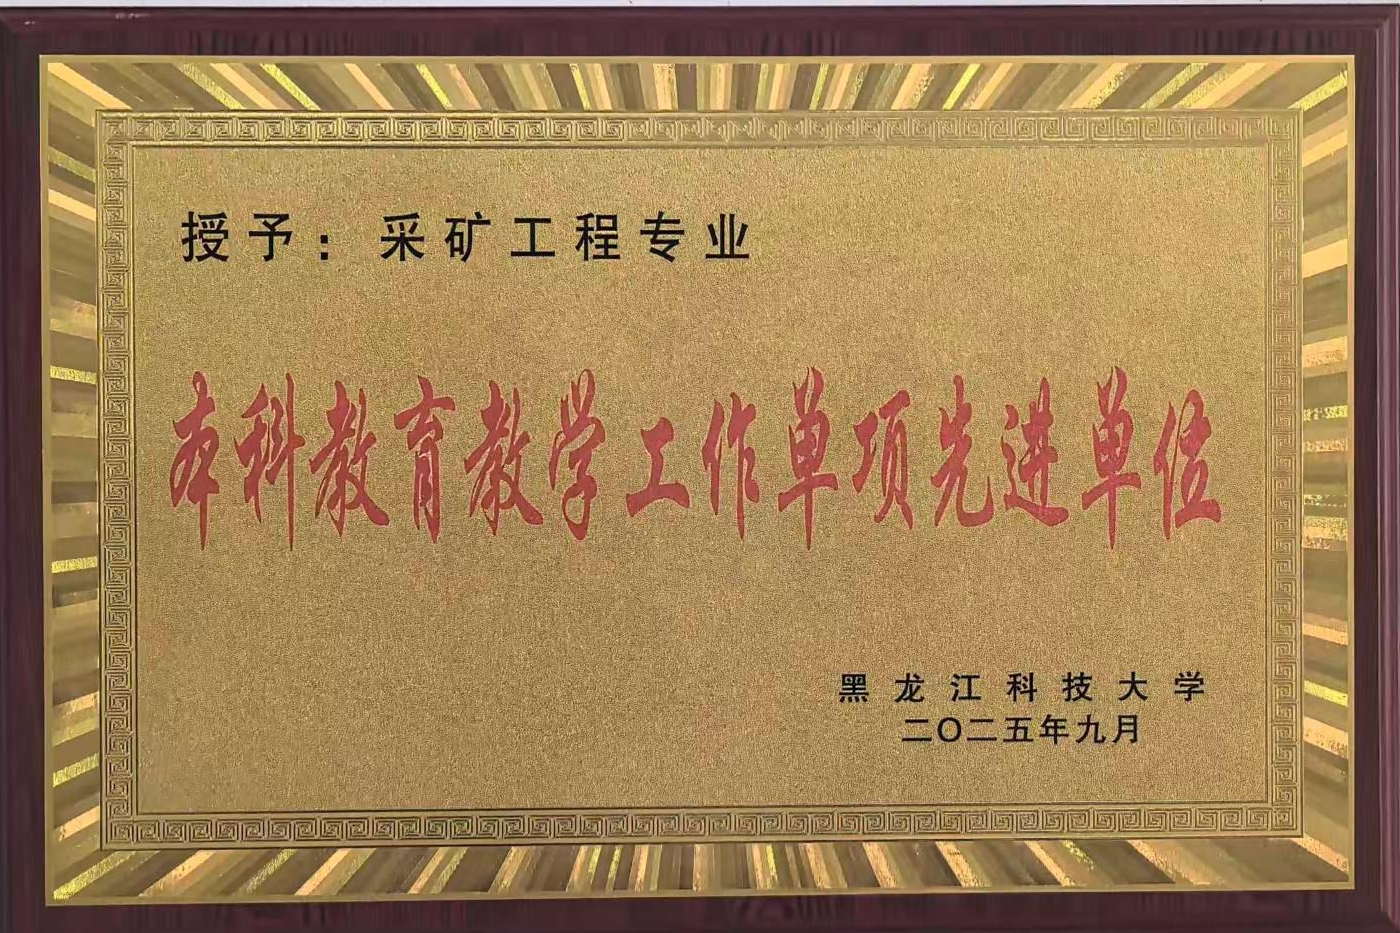 授予：采矿工程专业
本科教育教学工作单项先进单位
黑龙江科技大学
二〇二五年九月